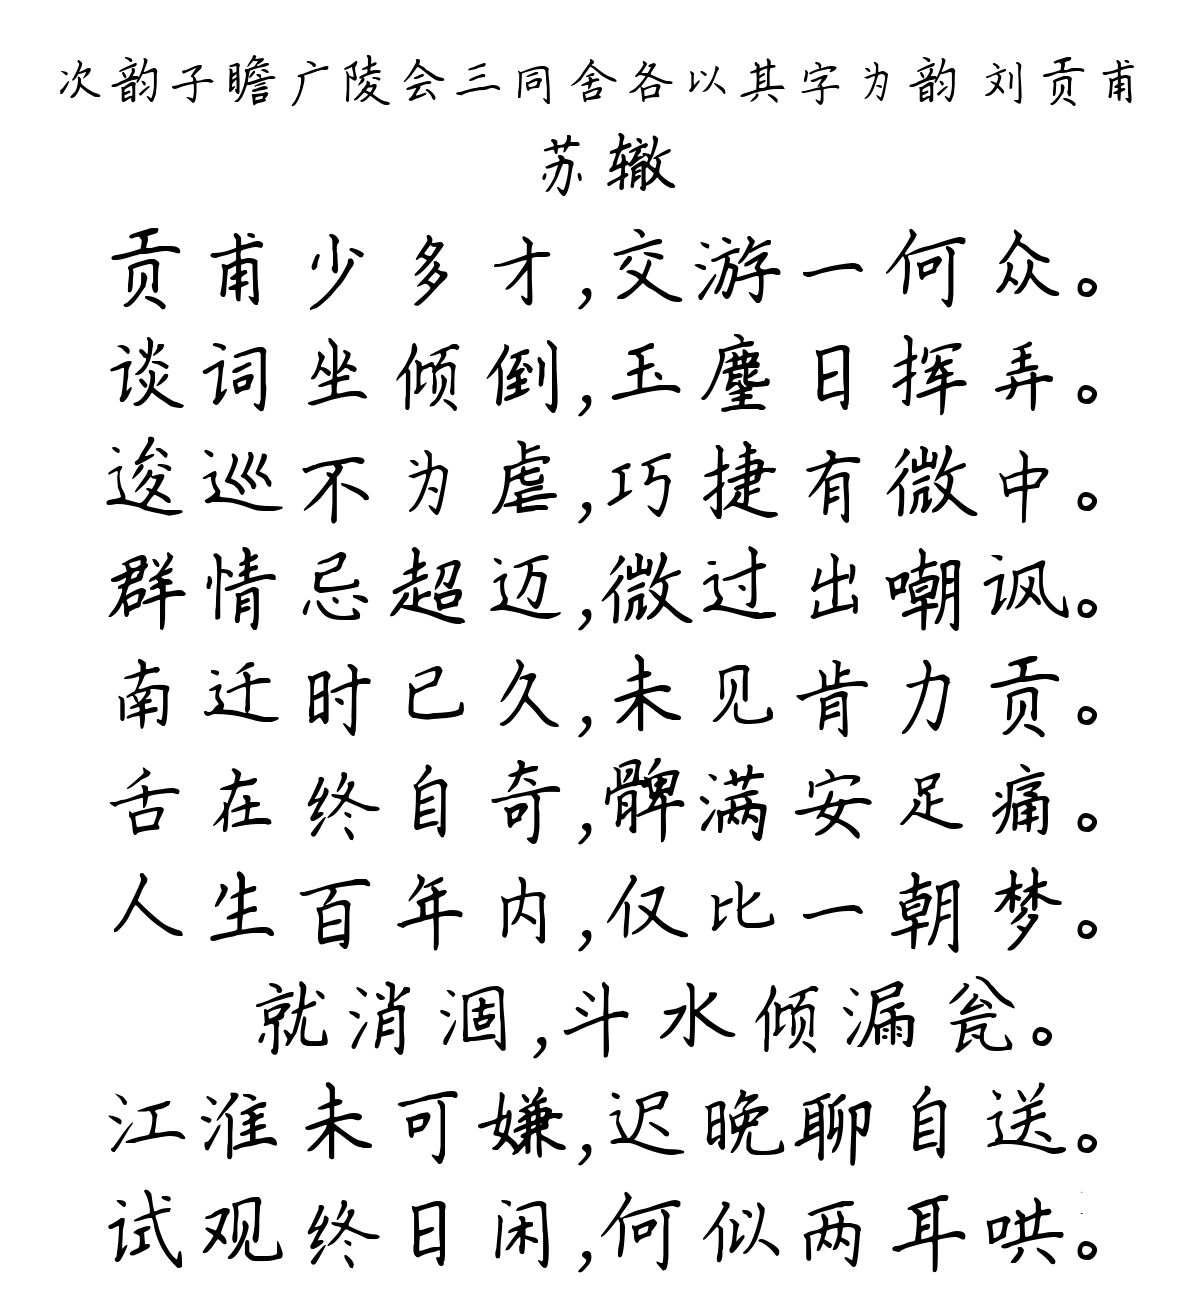 次韵子瞻广陵会三同舍各以其字为韵 刘贡甫
苏辙
贡甫少多才,交游一何众。
谈词坐倾倒,玉麈日挥弄。
逡巡不为虐,巧捷有微中。
群情忌超迈,微过出嘲讽。
南迁时已久,未见肯力贡。
舌在终自奇,髀满安足痛。
人生百年内,仅比一朝梦。
就消涸,斗水倾漏瓮。
江淮未可嫌,迟晚聊自送。
试观终日闲,何似两耳哄。